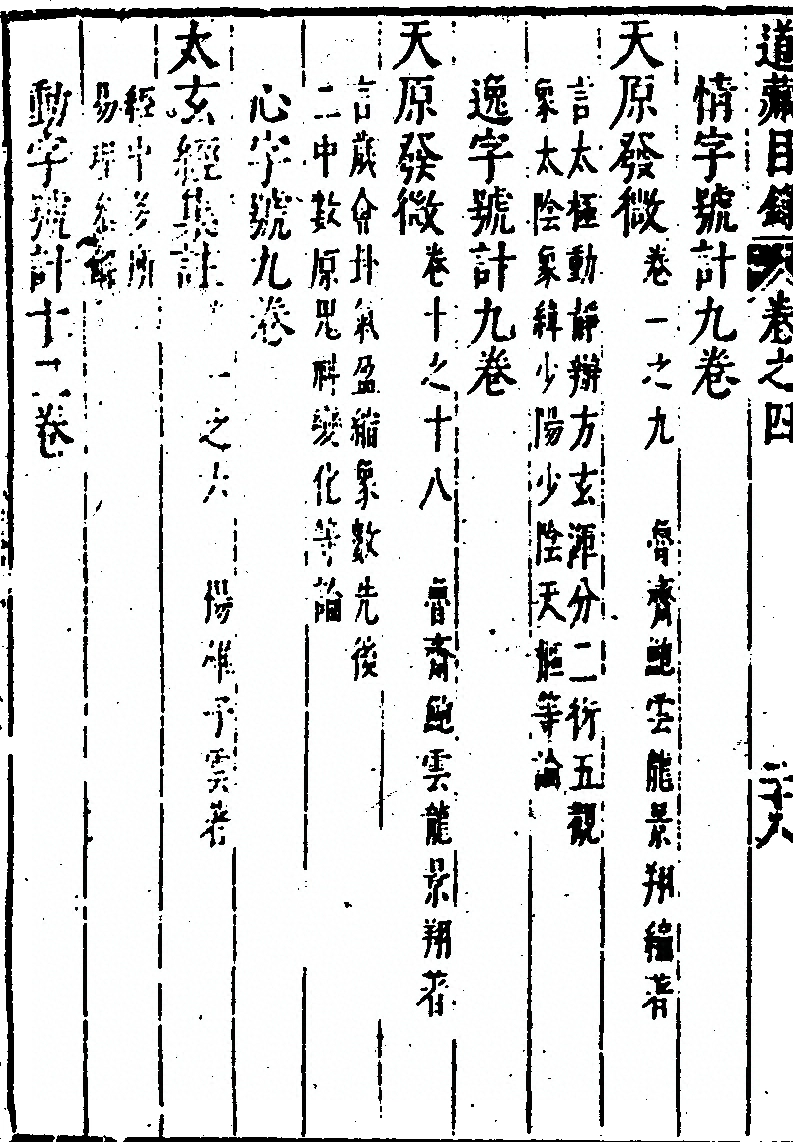 道藏目錄 卷之四 二十八
情字號計九卷
天原發微 卷一之九 魯齋鮑雲龍景翔編著
言太極動靜辯方玄渾分二衍五觀
象太陰象緯少陽少陰天樞等論
逸字號計九卷
天原發微 卷十之十八 魯齋鮑雲龍景翔著
言歲會卦氣盈縮象數先後
二中數原鬼神變化等論
心字號九卷
太玄經集註 一之六 揚雄子雲著
經中多所
易理
動字號計十二卷